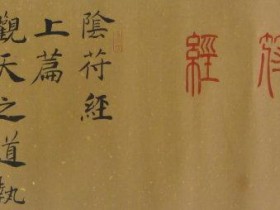 經
陰符經
上篇
觀天之道執